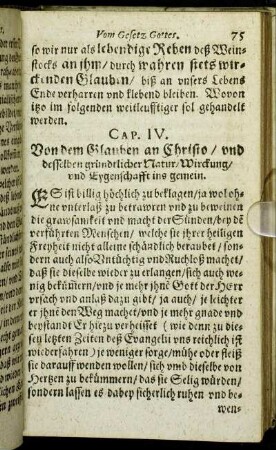 Vom Gesetz Gottes. 75
so wir nur als lebendige Reben deß Wein-
stocks an jhm/ durch wahren stets wir-
ckenden Glauben/ biß an unsers Lebens
Ende verharren und klebend bleiben. Wovon
itzo im folgenden weitleufftiger sol gehandelt
werden.
CAP. IV.
Von dem Glauben an Christo/ und
desselben gründtlicher Natur/ Wirckung/
und Eygenschafft ins gemein.
ES ist billig höchlich zu beklagen/ ja wol oh-
ne unterlaß zu betrawren und zu beweinen
die grawsamkeit und macht der Sünden/ bey dē
verführten Menschen/ welche sie jhrer heiligen
Freyheit nicht alleine schändlich beraubet/ son-
dern auch also Untüchtig und Ruchloß machet/
daß sie dieselbe wieder zu erlangen/ sich auch we-
nig bekümern/ und je mehr jhnē Gott der HErr
ursach und anlaß dazu gibt/ ja auch/ je leichter
er jhnē den Weg machet/ und je mehr gnade und
beystandt Er hiezu verheisset (wie denn zu die-
sen letzten Zeiten deß Evangelii uns reichlich ist
wiederfahren) je weniger sorge/ mühe oder fleiß
sie darauff wenden wollen/ sich umb dieselbe von
Hertzen zu bekümmern/ das sie Selig würden/
sondern lassen es dabey sicherlich ruhen und be-
wen-